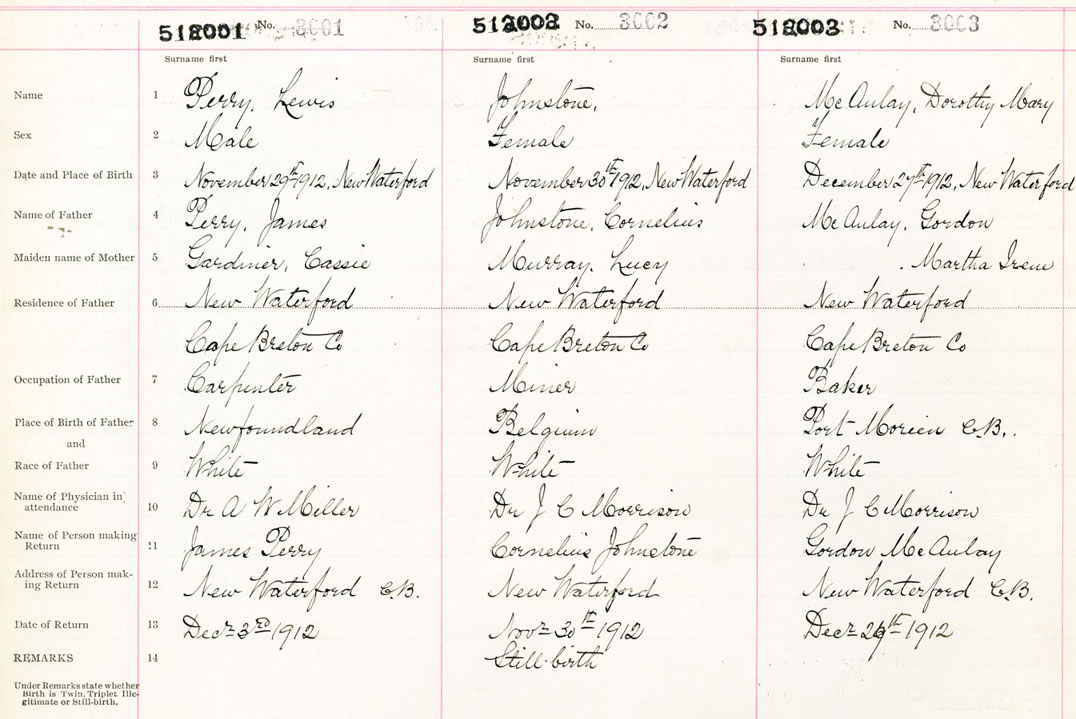 512001 No. 3001 512002 No. 3002 512003 No. 3003
Surname first Surname first Surname first
Name 1 Perry, Lewis Johnstone, Mc Aulay, Dorothy Mary
Sex 2 Male Female Female
Date and Place of Birth 3 November 29th 1912, New Waterford November 30th 1912, New Waterford December 27th 1912, New Waterford
Name of Father 4 Perry, James Johnstone, Cornelius Mc Aulay, Gordon
Maiden name of Mother 5 Gardiner, Cassie Murray, Lucy Martha Irene
Residence of Father 6 New Waterford New Waterford New Waterford
Cape Breton Co Cape Breton Co Cape Breton Co
Occupation of Father 7 Carpenter Miner Baker
Place of Birth of Father 8 Newfoundland Belgium Port Morien C.B.
and
Race of Father 9 White White White
Name of Physician in
attendance 10 Dr A W Miller Dr J C Morrison Dr J C Morrison
Name of Person making
Return 11 James Perry Cornelius Johnstone Gordon Mc Aulay
Address of Person mak-
ing Return 12 New Waterford C.B. New Waterford New Waterford C.B.
Date of Return 13 Decr 3rd 1912 Novr 30th 1912 Decr 1912
REMARKS 14 Still-birth
Under Remarks state whether
Birth is Twin, Triplet Ille-
gitimate or Still-birth.